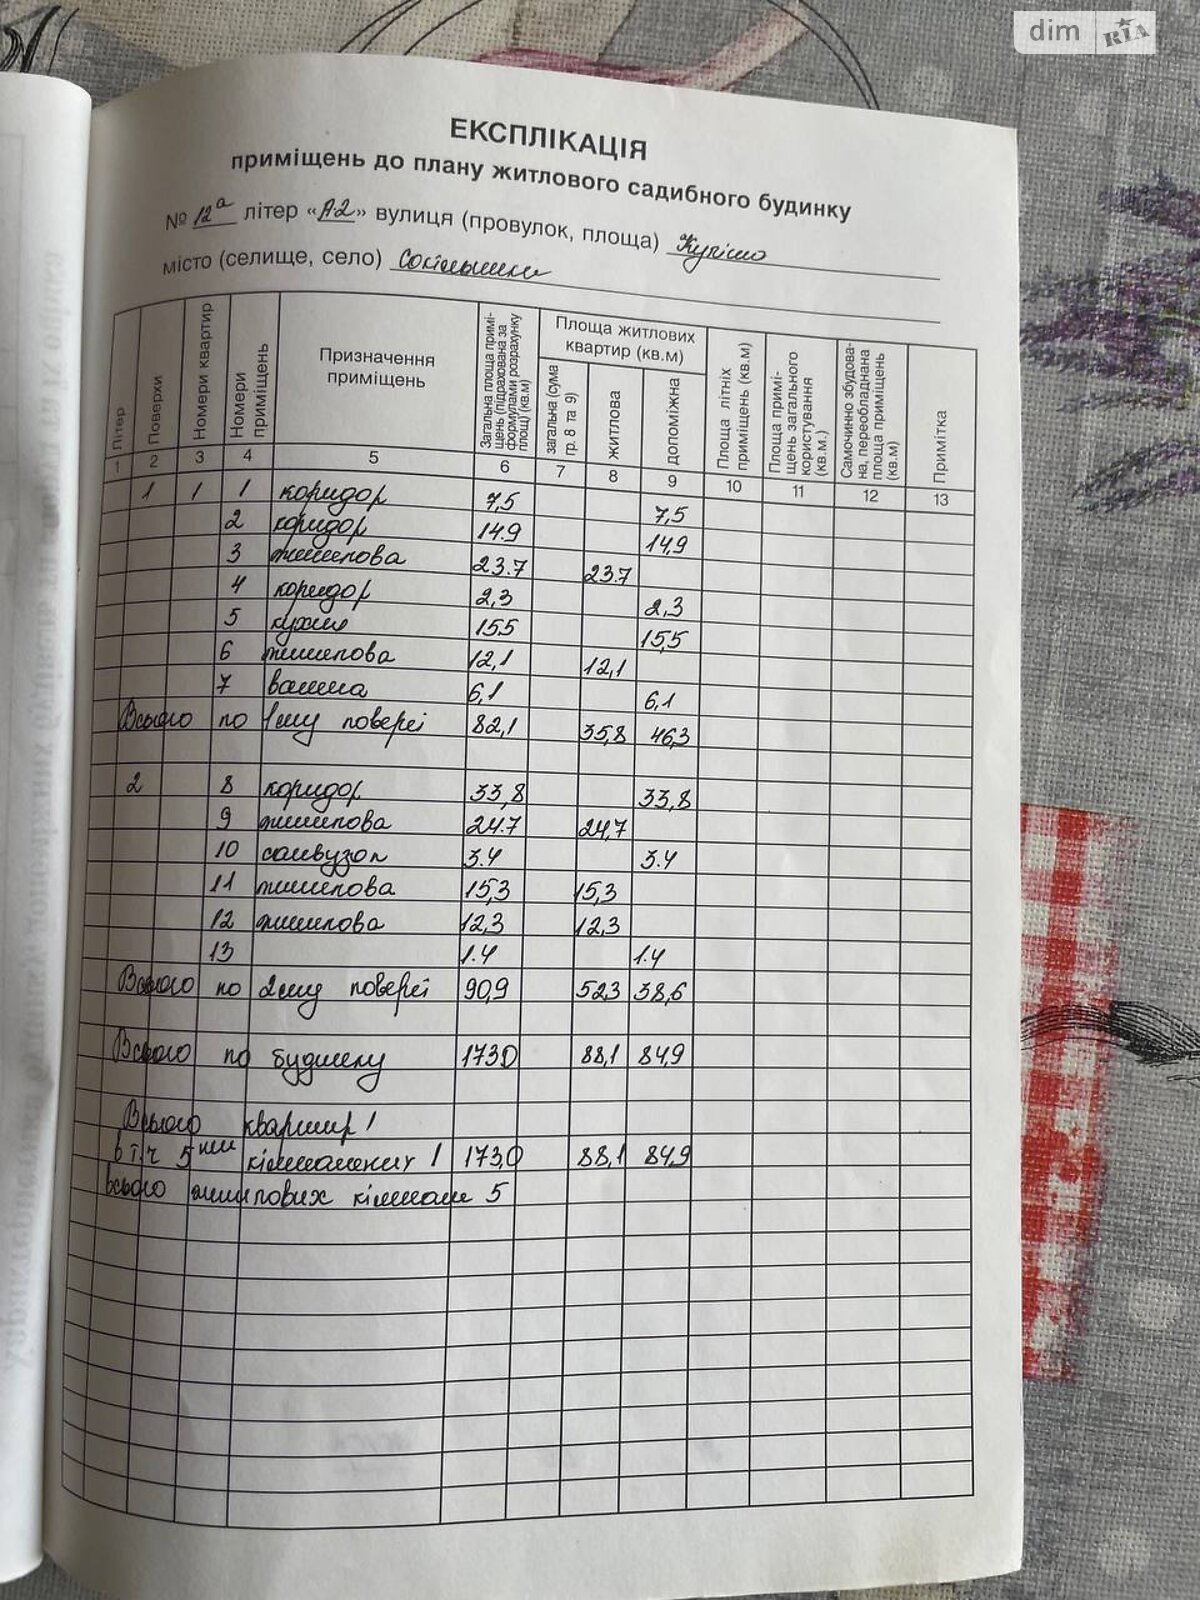 dim RIA
ЕКСПЛІКАЦІЯ
приміщень до плану житлового садибного будинку
№ 12а літер «А2» вулиця (провулок, площа)
місто (селище, село)
Літер
Поверхи
Номери квартир
Номери приміщень
Призначення приміщень
Загальна площа приміщень (підрахована за формулами розрахунку площ) (кв.м)
Площа житлових квартир (кв.м)
загальна (сума гр. 8 та 9)
житлова
допоміжна
Площа літніх приміщень (кв.м)
Площа приміщень загального користування (кв.м.)
Самочинно збудована, переобладнана площа приміщень (кв.м)
Примітка
1 2 3 4 5 6 7 8 9 10 11 12 13
1 1 1 коридор 7,5 7,5
2 коридор 14.9 14,9
3 житлова 23.7 23.7
4 коридор 2,3 2,3
5 кухня 15.5 15,5
6 житлова 12,1 12,1
7 ванна 6,1 6,1
Всього по 1му поверсі 82,1 35,8 46,3
2 8 коридор 33,8 33,8
9 житлова 24.7 24,7
10 санвузол 3.4 3.4
11 житлова 15,3 15,3
12 житлова 12,3 12,3
13 1.4 1.4
Всього по 2му поверсі 90,9 52,3 38,6
Всього по будинку 173,0 88,1 84,9
Всього квартир 1
в т.ч 5ти кімнатних 1 173,0 88,1 84,9
всього житлових кімнат 5